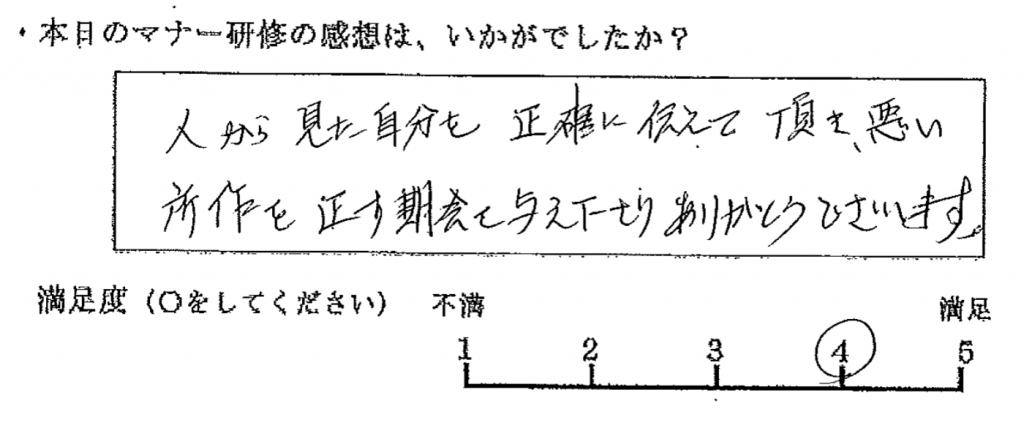 ・本日のマナー研修の感想は、いかがでしたか?
人から見た自分を正確に伝えて頂き、悪い
所作を正す期会を与え下さりありがとうございます。
満足度(○をしてください) 不満 満足
1 2 3 4 5